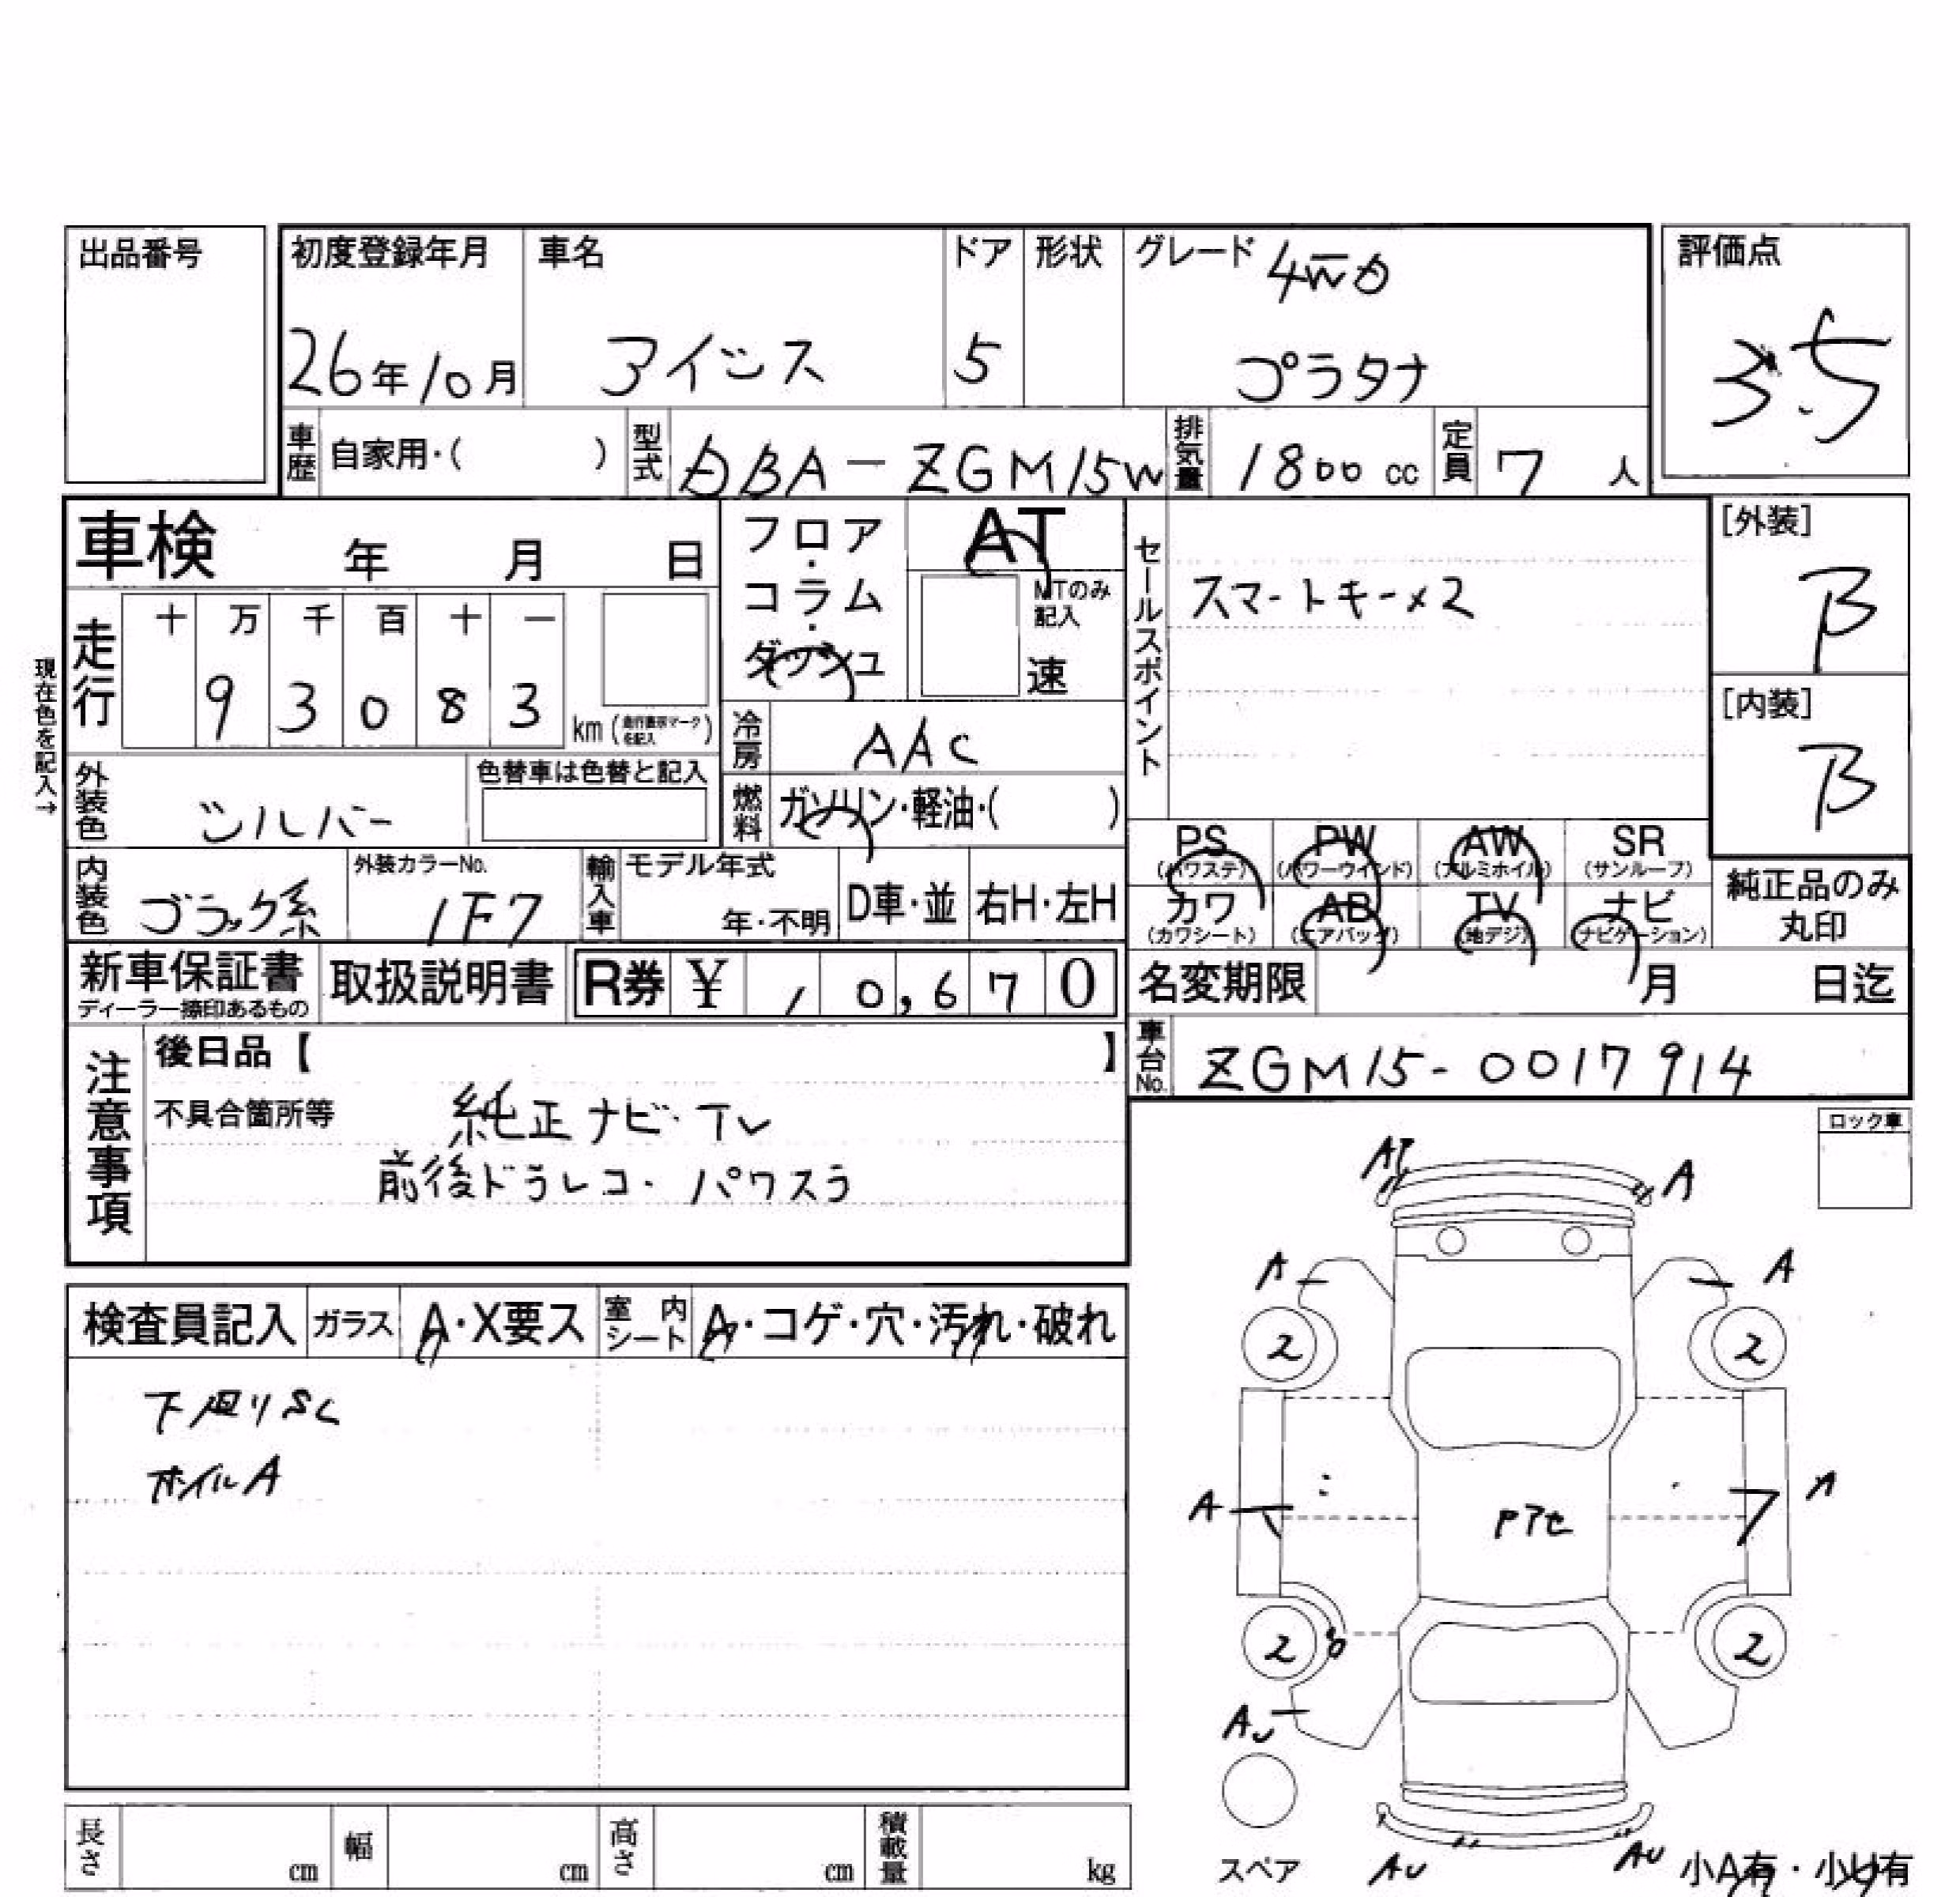 出品番号
初度登録年月 車名 ドア 形状 グレード 4WD 評価点
26年10月 アイシス 5 プラタナ 3.5
車歴 自家用・( ) 型式 DBA-ZGM15W 排気量 1800cc 定員 7人
車検 年 月 日
フロア・コラム・ダッシュ
AT
MTのみ記入
速
セールスポイント
スマートキー×2
[外装]
B
[内装]
B
現在色を記入→
走行 十 万 千 百 十 一
9 3 0 8 3 km (走行表示マークを記入)
冷房 AAC
外装色 シルバー 色替車は色替と記入
燃料 ガソリン・軽油・( )
PS (パワステ) PW (パワーウインド) AW (アルミホイル) SR (サンルーフ)
内装色 ブラック系 外装カラーNo. 1F7 輸入車 モデル年式 年・不明 D車・並 右H・左H
カワ (カワシート) AB (エアバッグ) TV (地デジ) ナビ (ナビゲーション)
純正品のみ丸印
新車保証書 ディーラー捺印あるもの 取扱説明書 R券 ¥ 10,670
名変期限 月 日迄
車台No. ZGM15-0017914
注意事項
後日品【 】
不具合箇所等 純正ナビ・TV
前後ドラレコ・パワスラ
ロック車
検査員記入 ガラス A・X要ス 室内シート A・コゲ・穴・汚れ・破れ
下廻りSC
ホイルA
A A
A A
2 2
A A
2 2
AU
スペア
AU AU
小A有・小U有
長さ cm 幅 cm 高さ cm 積載量 kg